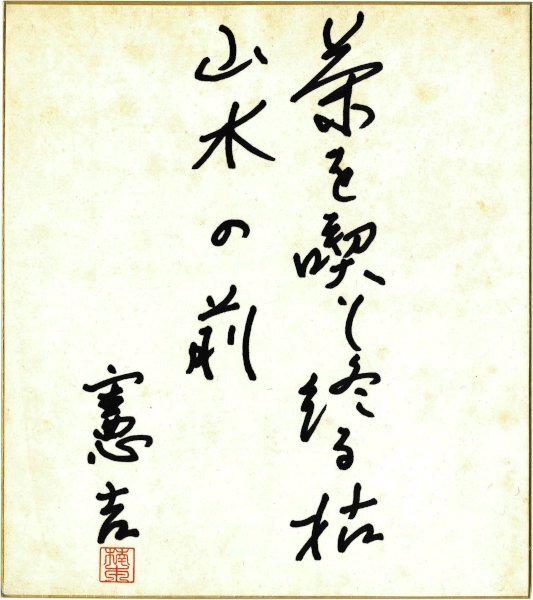 茶を喫し終る枯
山水の前
憲吉
楠本